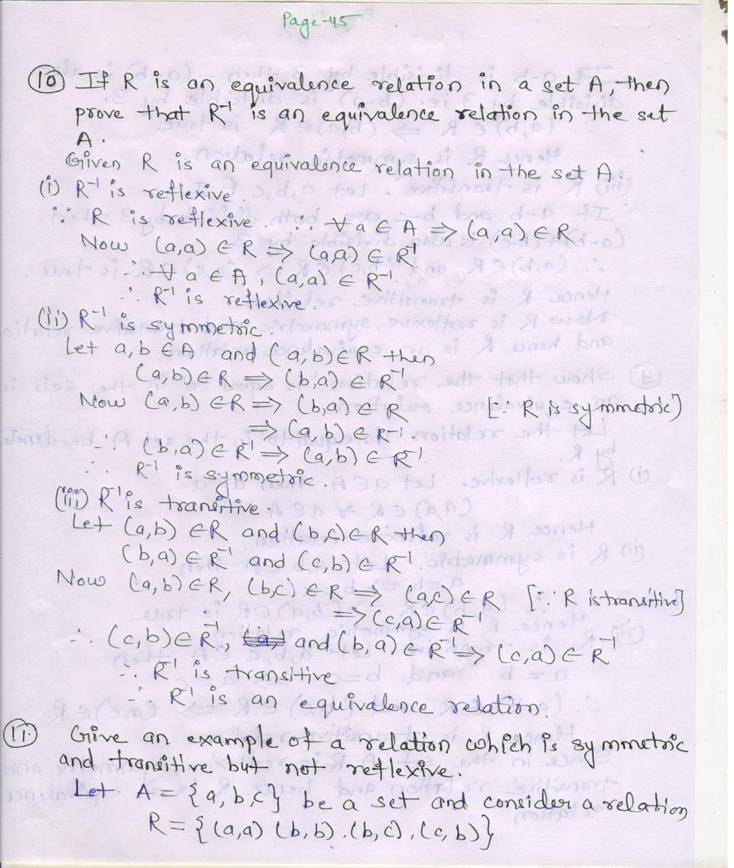 Page-45
(10) If R is an equivalence relation in a set A, then
prove that R⁻¹ is an equivalence relation in the set
A.
Given R is an equivalence relation in the set A.
(i) R⁻¹ is reflexive.
∵ R is reflexive ∴ ∀ a ∈ A ⇒ (a,a) ∈ R
Now (a,a) ∈ R ⇒ (a,a) ∈ R⁻¹
∴ ∀ a ∈ A, (a,a) ∈ R⁻¹
∴ R⁻¹ is reflexive.
(ii) R⁻¹ is symmetric.
Let a,b ∈ A and (a,b) ∈ R then
(a,b) ∈ R ⇒ (b,a) ∈ R⁻¹
Now (a,b) ∈ R ⇒ (b,a) ∈ R [∵ R is symmetric]
⇒ (a,b) ∈ R⁻¹.
∴ (b,a) ∈ R⁻¹ ⇒ (a,b) ∈ R⁻¹
∴ R⁻¹ is symmetric.
(iii) R⁻¹ is transitive.
Let (a,b) ∈ R and (b,c) ∈ R then
(b,a) ∈ R⁻¹ and (c,b) ∈ R⁻¹
Now (a,b) ∈ R, (b,c) ∈ R ⇒ (a,c) ∈ R [∵ R is transitive]
⇒ (c,a) ∈ R⁻¹
∴ (c,b) ∈ R⁻¹, and (b,a) ∈ R⁻¹ ⇒ (c,a) ∈ R⁻¹
∴ R⁻¹ is transitive
∴ R⁻¹ is an equivalence relation.
(11) Give an example of a relation which is symmetric
and transitive but not reflexive.
Let A = {a,b,c} be a set and consider a relation
R = {(a,a) (b,b).(b,c),(c,b)}